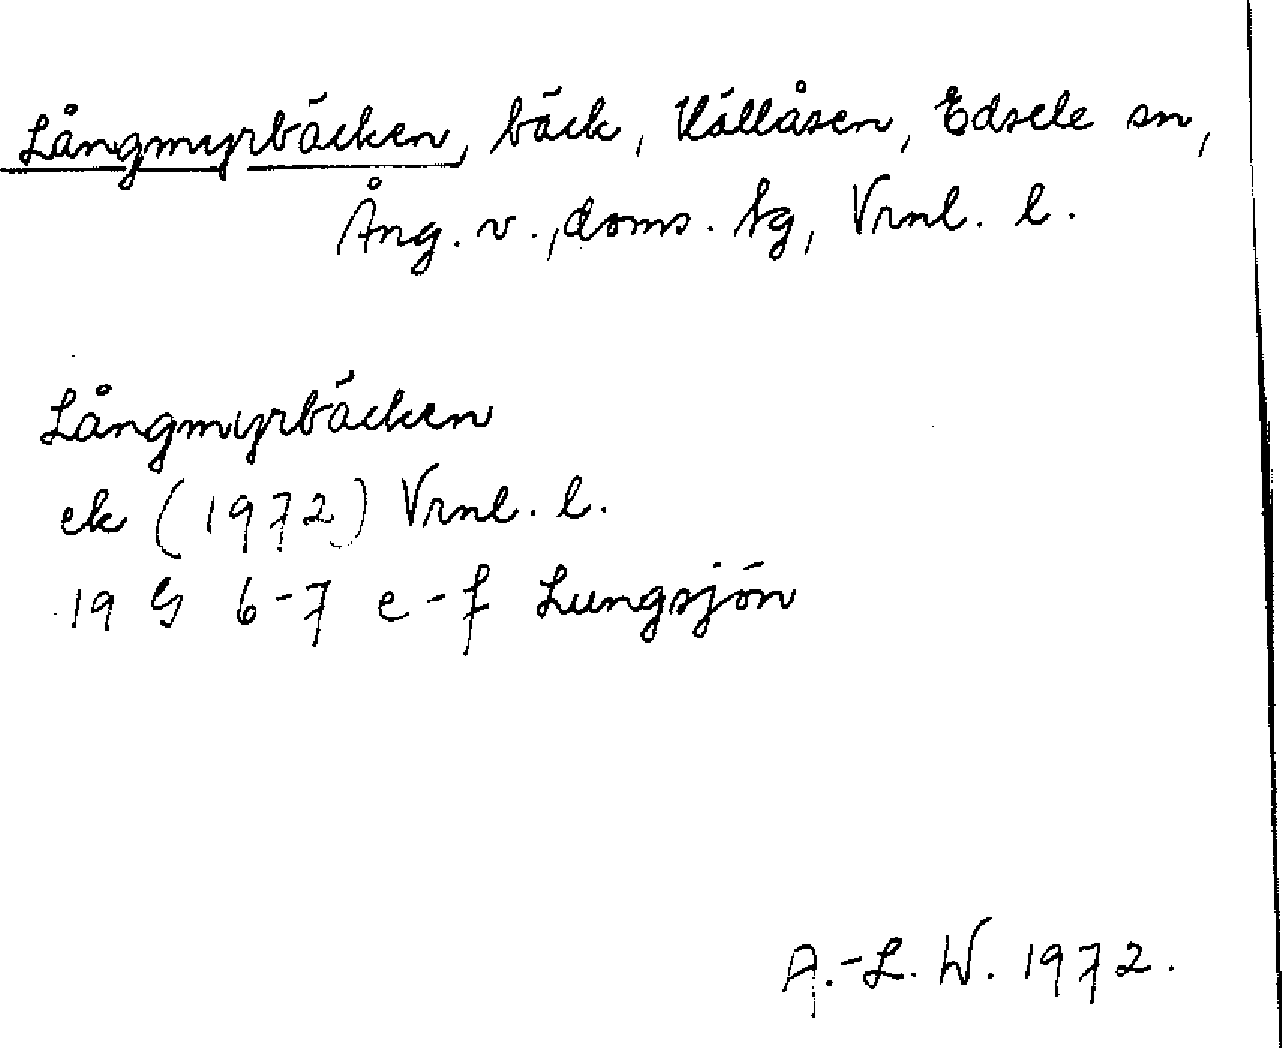 Långmyrbäcken, bäck, Källåsen, Edsele sn,
Ång. v., doms. tg, Vrnl. l.
Långmyrbäcken
ek (1972) Vrnl. l.
19 G 6-7 e-f Lungsjön
A.-L. W. 1972.